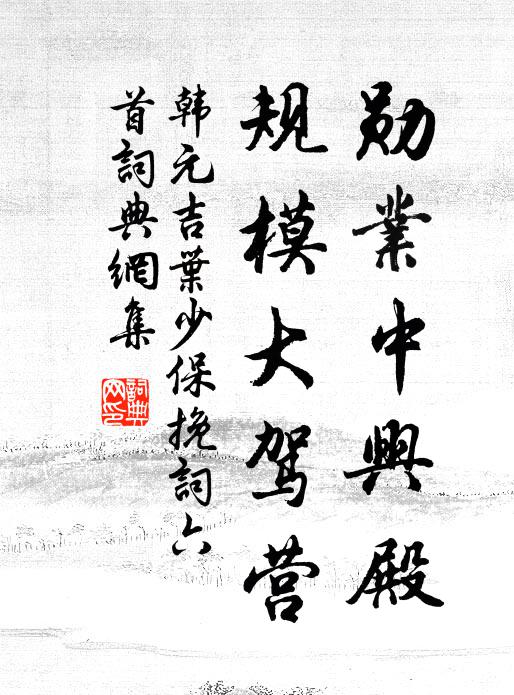 勋業中興殿
規模大驾营
韩元吉葉少保挽詞六
首詞典網集
詞典网印